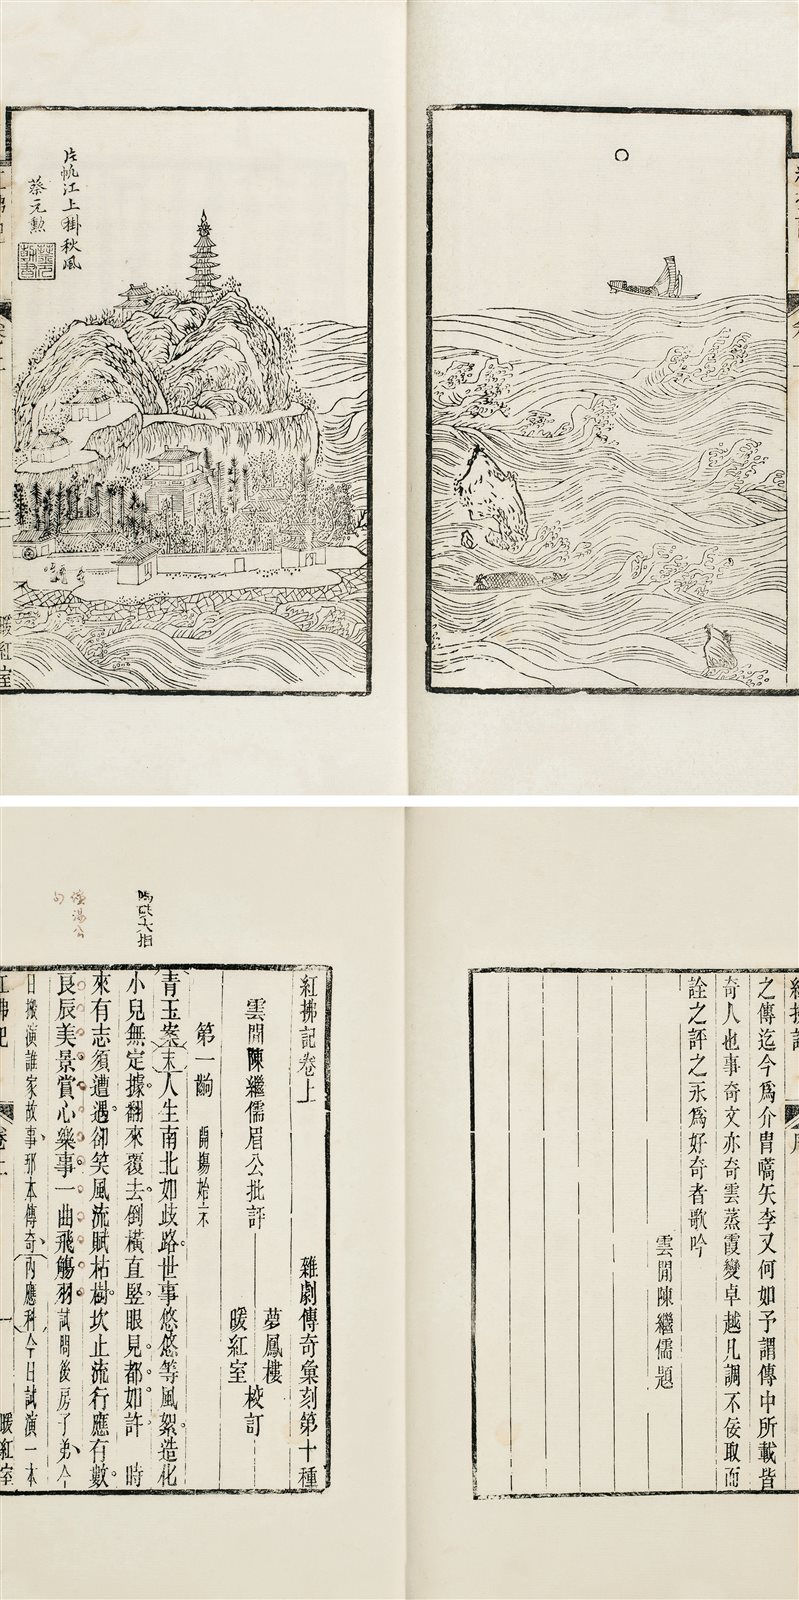 片帆江上掛秋風
蔡元勲
暖紅室
之傳迄今爲介冑嚆矢李又何如予謂傳中所載皆
奇人也事奇文亦奇雲蒸霞變卓越凡調不佞取而
詮之評之永爲好奇者歌吟
雲間陳繼儒題
紅拂記卷上
雜劇傳奇彙刻第十種
雲間陳繼儒眉公批評
夢鳳樓
暖紅室
校訂
第一齣
開場始末
青玉案末人生南北如歧路世事悠悠等風絮造化
小兒無定據翻來覆去倒橫直竪眼見都如許
時
來有志須遭遇卻笑風流賦枯樹坎止流行應有數
良辰美景賞心樂事一曲飛觴羽試問後房子弟今
日搬演誰家故事那本傳奇内應科今日試演一本
紅拂記
卷上
一
暖紅室